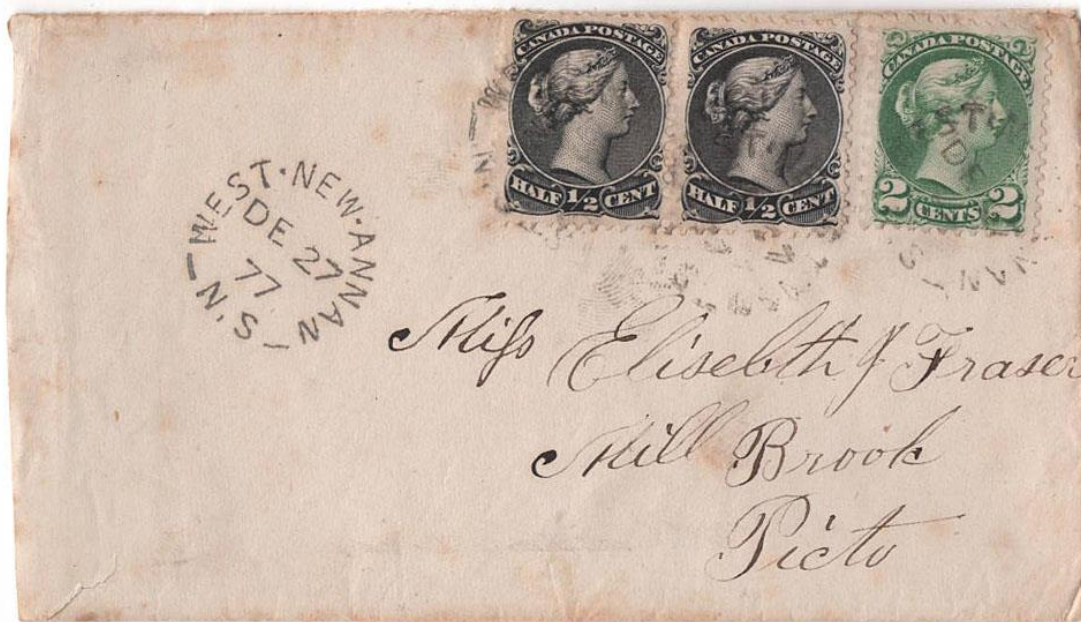 CANADA POSTAGE
HALF 1/2 CENT
CANADA POSTAGE
HALF 1/2 CENT
CANADA POSTAGE
2 CENTS 2
WEST·NEW·ANNAN
DE 27
77
N.S
Miſs Elisebth J Fraser
Mill Brook
Picto